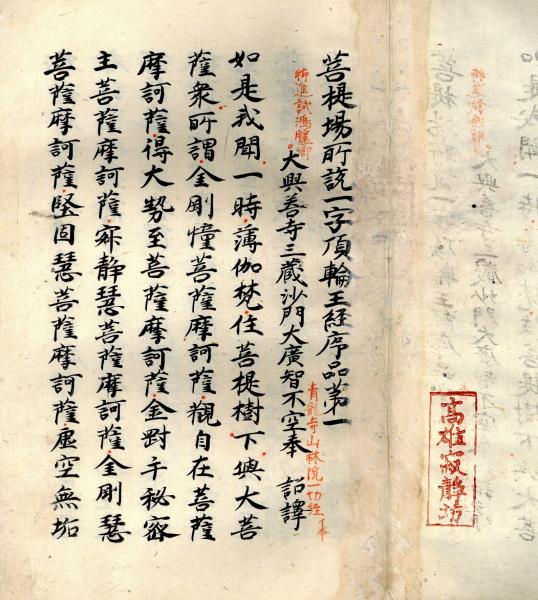 高雄寂靜坊
菩提場所說一字頂輪王經序品第一
特進試鴻臚卿
大興善寺三藏沙門大廣智不空奉 詔譯
青龍寺山林院一切經 本
如是我聞一時薄伽梵住菩提樹下與大菩
薩衆所謂金剛幢菩薩摩訶薩觀自在菩薩
摩訶薩得大勢至菩薩摩訶薩金剛手秘密
主菩薩摩訶薩寂静慧菩薩摩訶薩金剛慧
菩薩摩訶薩堅固慧菩薩摩訶薩虛空無垢